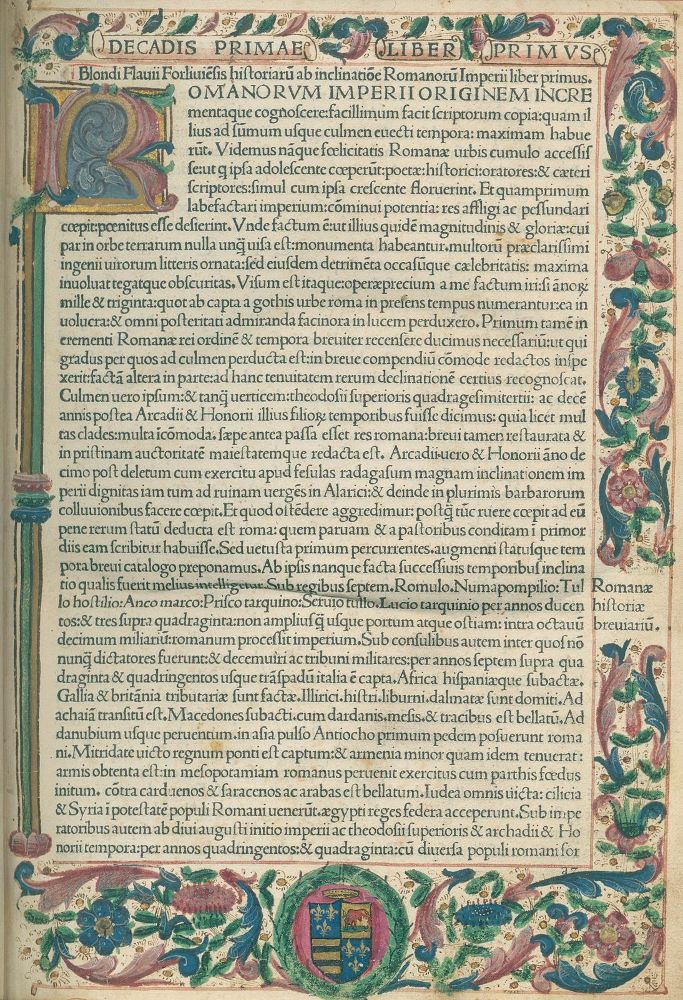 DECADIS PRIMAE LIBER PRIMVS
Blondi Flauii Forliuiẽsis historiarũ ab inclinatiõe Romanorũ Imperii liber primus.
ROMANORVM IMPERII ORIGINEM INCRE
mentaque cognoscere: facillimum facit scriptorum copia: quam il
lius ad sũmum usque culmen euecti tempora: maximam habue
rũt. Videmus nãque fœlicitatis Romanæ urbis cumulo accessis
se: ut q̃ ipsa adolescente cœperũt: poetæ: historici: oratores: & cæteri
scriptores: simul cum ipsa crescente floruerint. Et quamprimum
labefactari imperium: cõminui potentia: res affligi ac pessundari
cœpit: pœnitus esse desierint. Vnde factum ẽ: ut illius quidẽ magnitudinis & gloriæ: cui
par in orbe terrarum nulla unq̃ uisa est: monumenta habeantur. multorũ præclarissimi
ingenii uirorum litteris ornata: sed eiusdem detrimẽta occasũque cælebritatis: maxima
inuoluat tegatque obscuritas. Visum est itaque: operæprecium a me factum iri: si ãnoꝝ
mille & triginta: quot ab capta a gothis urbe roma in presens tempus numerantur: ea in
uolucra: & omni posteritati admiranda facinora in lucem perduxero. Primum tamẽ in
crementi Romanæ rei ordinẽ & tempora breuiter recensere ducimus necessariũ: ut qui
gradus per quos ad culmen perducta est: in breue compendiũ cõmode redactos inspe
xerit: factã altera in parte: ad hanc tenuitatem rerum declinationẽ certius recognoscat.
Culmen uero ipsum: & tanq̃ uerticem: theodosii superioris quadragesimitertii: ac decẽ
annis postea Arcadii & Honorii illius filioꝝ temporibus fuisse dicimus: quia licet mul
tas clades: multa ĩcõmoda. sæpe antea passa esset res romana: breui tamen restaurata &
in pristinam auctoritatẽ maiestatemque redacta est. Arcadii uero & Honorii ãno de
cimo post deletum cum exercitu apud fesulas radagasum magnam inclinationem im
perii dignitas iam tum ad ruinam uergẽs in Alarici: & deinde in plurimis barbarorum
colluuionibus facere cœpit. Et quod ostẽdere aggredimur: postq̃ tũc ruere cœpit ad eũ
pene rerum statũ deducta est roma: quem paruam & a pastoribus conditam ĩ primor
diis eam scribitur habuisse. Sed uetusta primum percurrentes. augmenti statusque tem
pora breui catalogo preponamus. Ab ipsis nanque facta successiuis temporibus inclina
tio qualis fuerit melius intelligetur. Sub regibus septem. Romulo. Numapompilio: Tul
lo hostilio: Anco marco: Prisco tarquino: Seruio tullo. Lucio tarquinio per annos ducen
tos: & tres supra quadraginta: non ampliusq̃ usque portum atque ostiam: intra octauũ
decimum miliariũ: romanum processit imperium. Sub consulibus autem inter quos nõ
nunq̃ dictatores fuerunt: & decemuiri ac tribuni militares: per annos septem supra qua
draginta & quadringentos usque trãspadũ italia ẽ capta. Africa hispaniæque subactæ.
Gallia & britãnia tributariæ sunt factæ. Illirici. histri. liburni. dalmatæ sunt domiti. Ad
achaiã transitũ est. Macedones subacti. cum dardanis. mesis. & tracibus est bellatũ. Ad
danubium usque peruentum. in asia pulso Antiocho primum pedem posuerunt roma
ni. Mitridate uicto regnum ponti est captum: & armenia minor quam idem tenuerat:
armis obtenta est: in mesopotamiam romanus peruenit exercitus cum parthis fœdus
initum. cõtra carduenos & saracenos ac arabas est bellatum. Iudea omnis uicta: cilicia
& Syria ĩ potestatẽ populi Romani uenerũt. ægypti reges federa acceperunt. Sub impe
ratoribus autem ab diui augusti initio imperii ac theodosii superioris & archadii & Ho
norii tempora: per annos quadringentos: & quadraginta: cũ diuersa populi romani for
Romanæ
historiæ
breuiariũ.